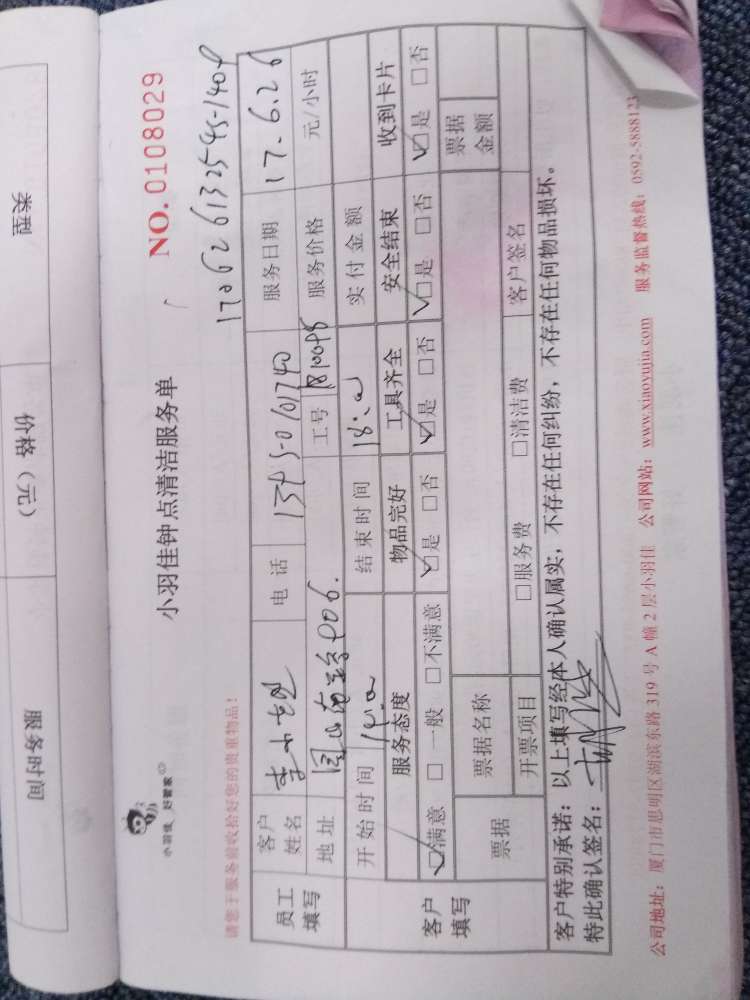 类型
价格（元）
服务时间
小羽佳 好管家
小羽佳钟点清洁服务单
NO. 0108029
请您于服务前收拾好您的贵重物品！
17062613254595-1404
员工填写
客户姓名 李小姐 电话 服务日期 17.6.26
地址 906. 工号 服务价格 元/小时
客户填写
开始时间 结束时间 18:00 实付金额
服务态度 物品完好 工具齐全 安全结束 收到卡片
☑满意 □一般 □不满意 ☑是 □否 ☑是 □否 ☑是 □否 ☑是 □否
票据 票据名称 票据金额
开票项目 □服务费 □清洁费 客户签名
客户特别承诺：以上填写经本人确认属实，不存在任何纠纷，不存在任何物品损坏。
特此确认签名：
公司地址：厦门市思明区湖滨东路 319 号 A 幢 2 层小羽佳 公司网站：www.xiaoyujia.com 服务监督热线：0592-5888123